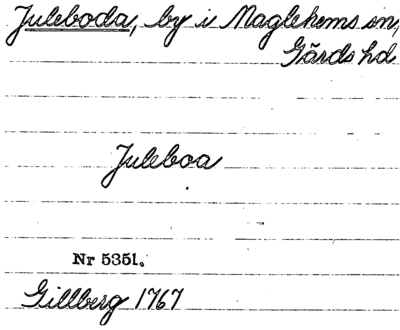 Juleboda, by i Maglehems sn,
Gärds hd
Juleboa
Nr 5351.
Gillberg 1767